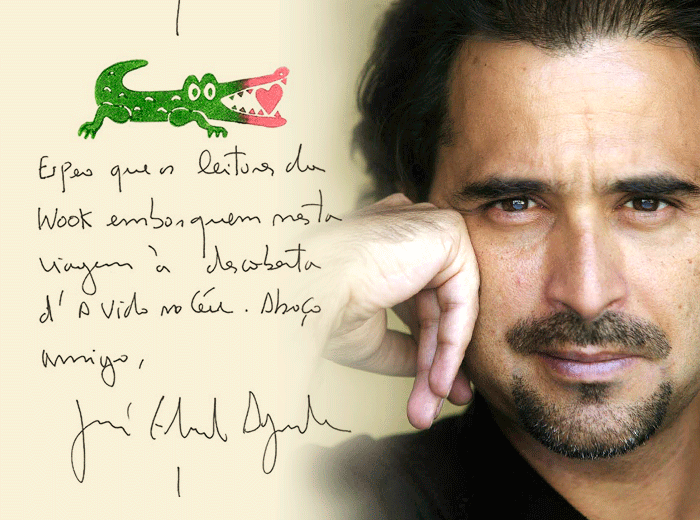 Espero que os leitores da
Wook embarquem nesta
viagem à descoberta
d' A Vida no Céu. Abraço
amigo,
José Eduardo Agualusa